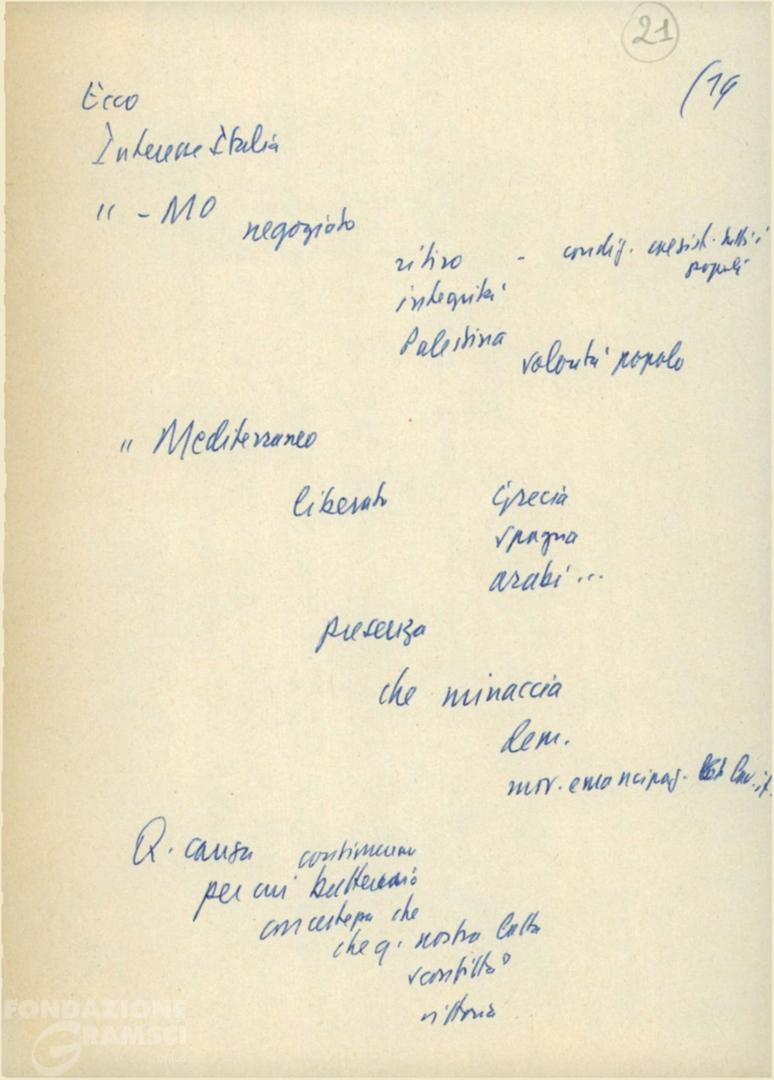 21
(19
Ecco
Interesse Italia
" - MO negoziato
ritiro - condiz. esist. tutti i
popoli
integrità
Palestina volontà popolo
" Mediterraneo
liberato Grecia
Spagna
arabi...
presenza
che minaccia
dem.
mov. emancipaz.
Q. causa continueremo
per cui batteremo
che
che q. nostra lotta
sconfitta
vittoria
FONDAZIONE
GRAMSCI